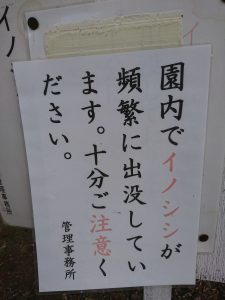 園内でイノシシが
頻繁に出没してい
ます。十分ご注意く
ださい。
管理事務所
イノシ